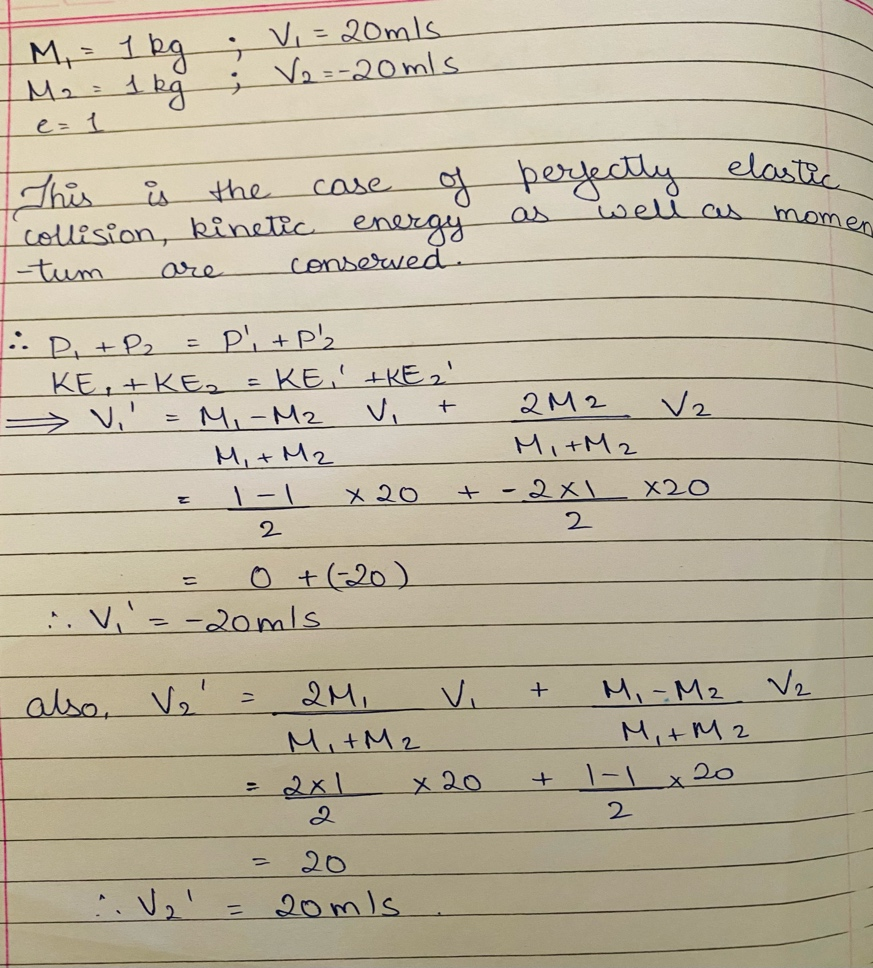 M₁ = 1 kg ; V₁ = 20m/s
M₂ = 1 kg ; V₂ = -20m/s
e = 1
This is the case of perfectly elastic
collision, kinetic energy as well as momen
-tum are conserved.
∴ P₁ + P₂ = P'₁ + P'₂
KE₁ + KE₂ = KE₁' + KE₂'
⟹ V₁' = M₁ - M₂ / M₁ + M₂ V₁ + 2M₂ / M₁ + M₂ V₂
= 1 - 1 / 2 × 20 + - 2 × 1 / 2 × 20
= 0 + (-20)
∴ V₁' = -20m/s
also, V₂' = 2M₁ / M₁ + M₂ V₁ + M₁ - M₂ / M₁ + M₂ V₂
= 2 × 1 / 2 × 20 + 1 - 1 / 2 × 20
= 20
∴ V₂' = 20m/s.